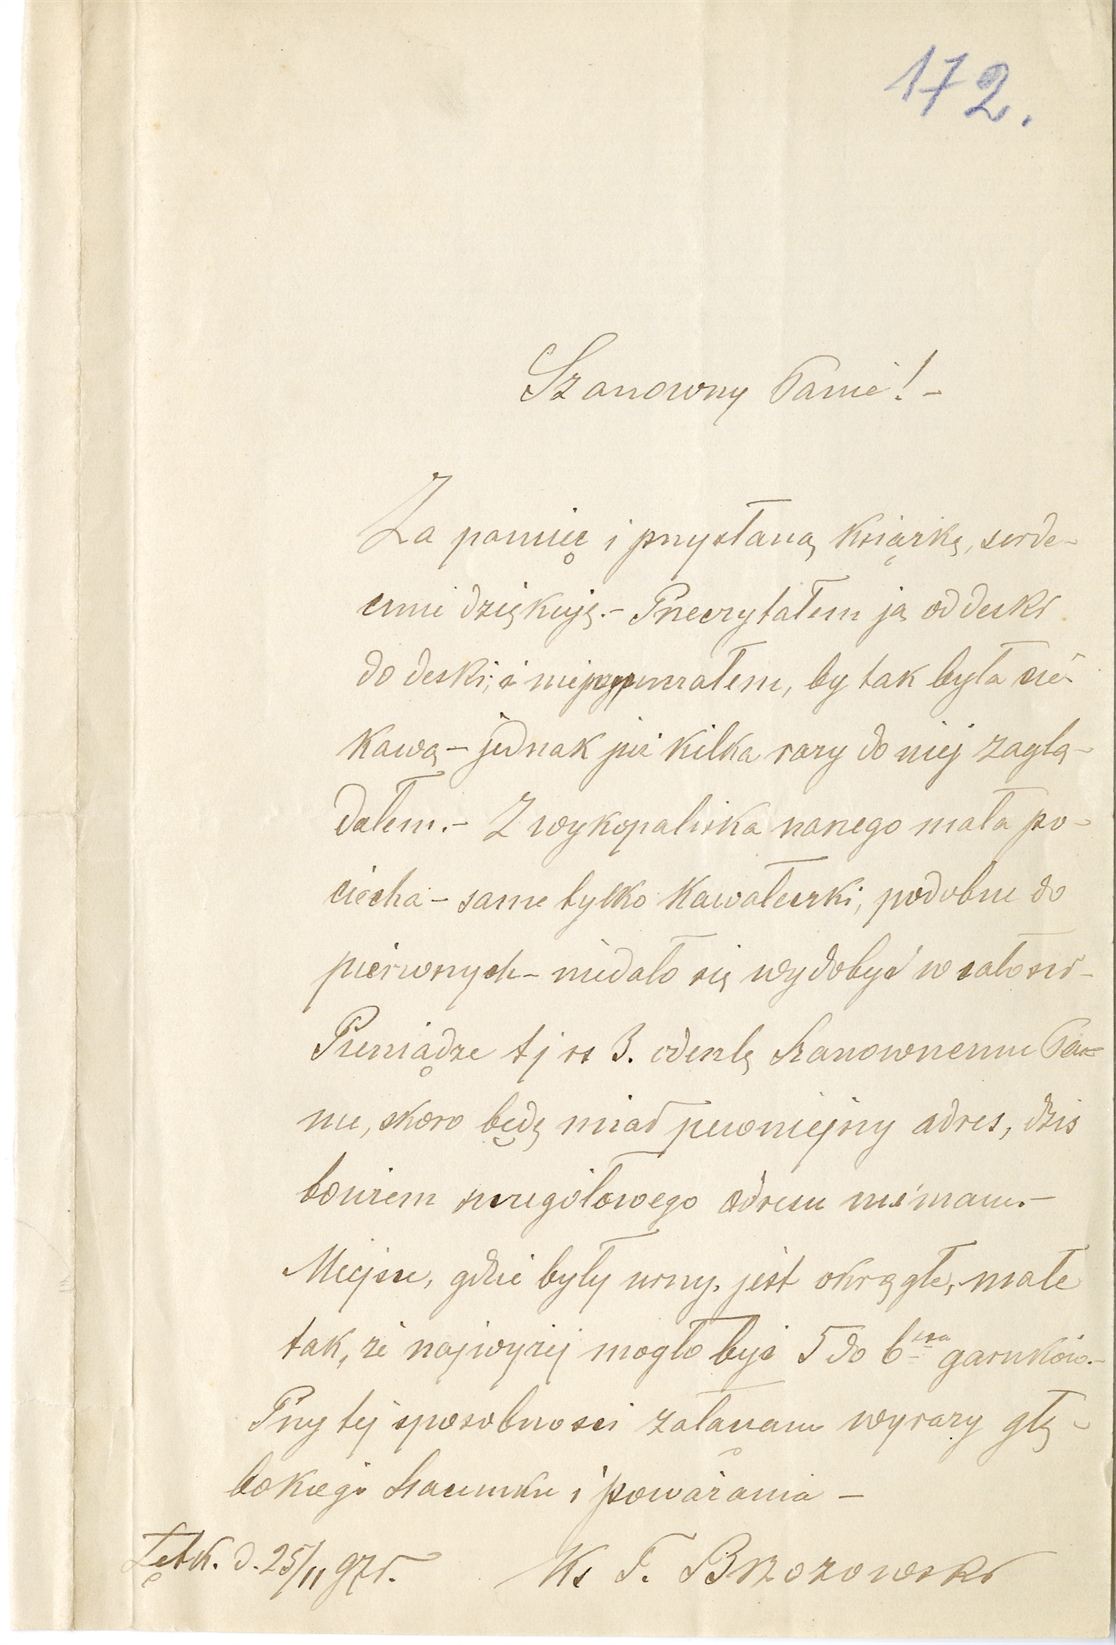 172.
Szanowny Panie! –
Za pamięć i przysłaną książkę, serde-
cznie dziękuję. – Przeczytałem ją od deski
do deski, i nie przypuszczałem, by tak była cie-
kawą – jednak już kilka razy do niej zaglą-
dałem. – Z wykopaliska naszego mała po-
ciecha – same tylko kawałeczki, podobne do
pierwszych – niedało się wydobyć w całości –
Pieniądze tj rs 3. odeszlę Szanownemu Pa-
nu, skoro będę miał pewniejszy adres, dziś
bowiem szczegółowego adresu niemam. –
Miejsce, gdzie były urny, jest okrągłe, małe
tak, że najwyżej mogło być 5 do 6ciu garnków. –
Przy tej sposobności załączam wyrazy głę-
bokiego szacunku i poważania –
d. 25/11 97 r. Ks F. Brzozowski